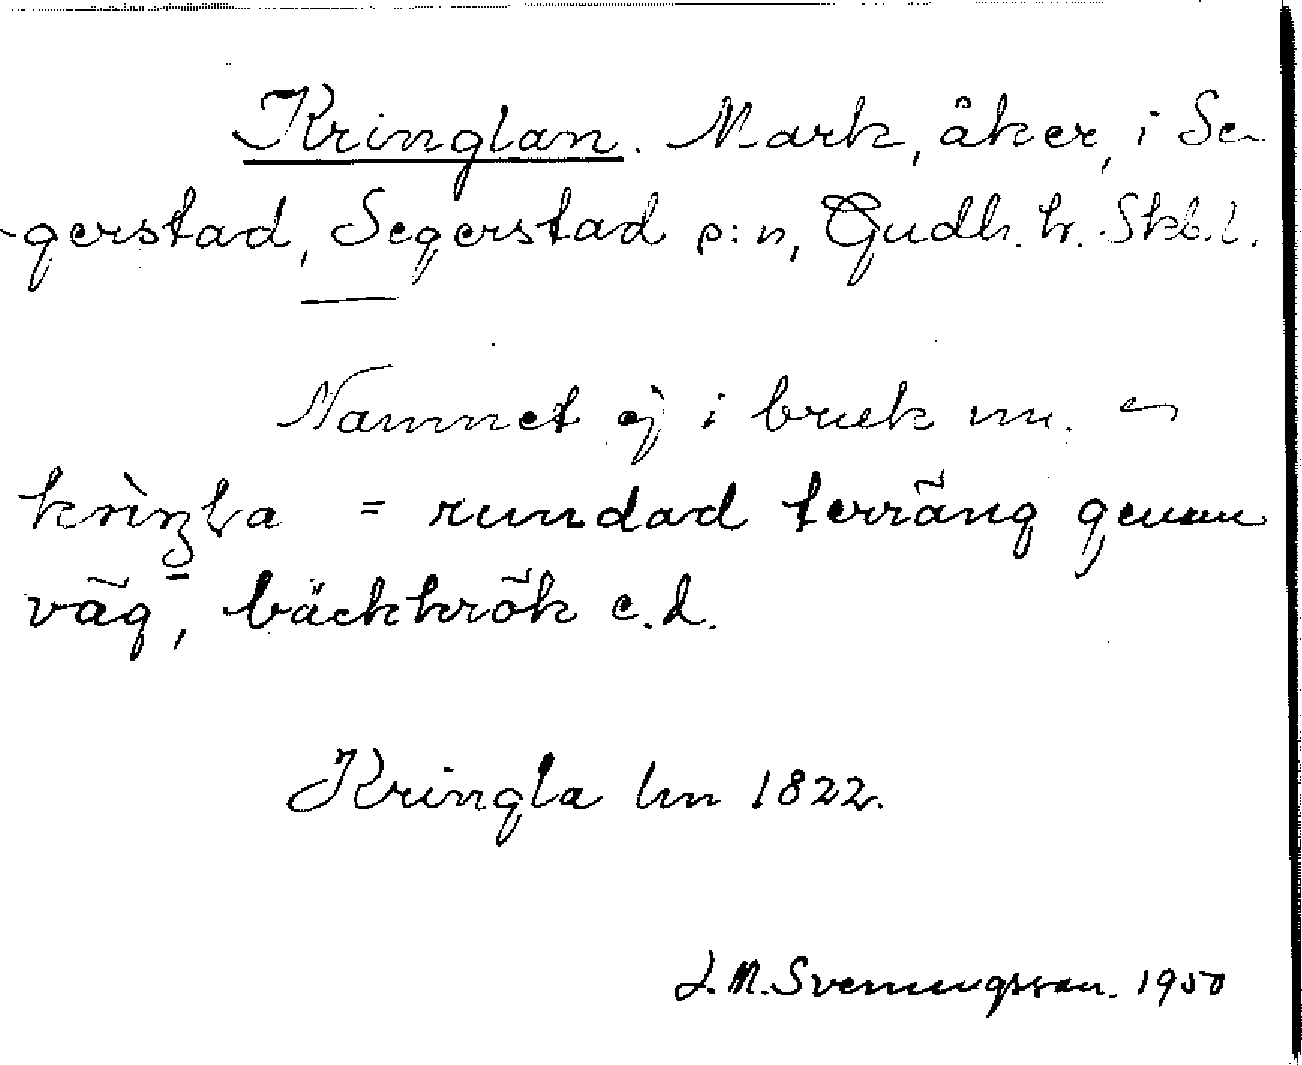 Kringlan. Mark, åker, i Se-
gerstad, Segerstad s:n, Gudh. hr. Skb. l.
Namnet ej i bruk nu. en
krìŋla = rundad terräng genom
väg-, bäckkrök e.d.
Kringla lm 1822.
J. M. Svenungsson. 1950